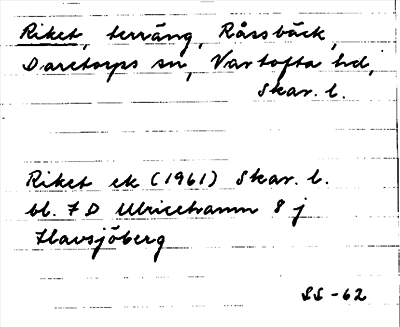 Riket, terräng, Rårsbäck,
Daretorps sn, Vartofta hd,
Skar. l.
Riket ek (1961) Skar. l.
bl. 7 D Ulricehamn 8 j
Havsjöberg
SS -62